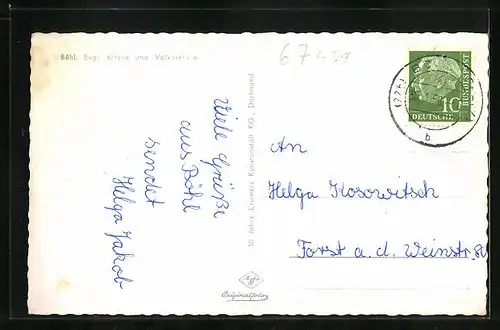 Böhl. Evgl. Kirche und Volksschule
Viele Grüße
aus Böhl
sendet
Helga Jakob
50 Jahre Cramers Kunstanstalt KG., Dortmund
Agfa
Originalfoto
67
DEUTSCHE
BUNDESPOST
10
(22b)
b
An
Helga Kosowitsch
Forst a. d. Weinstr. 80